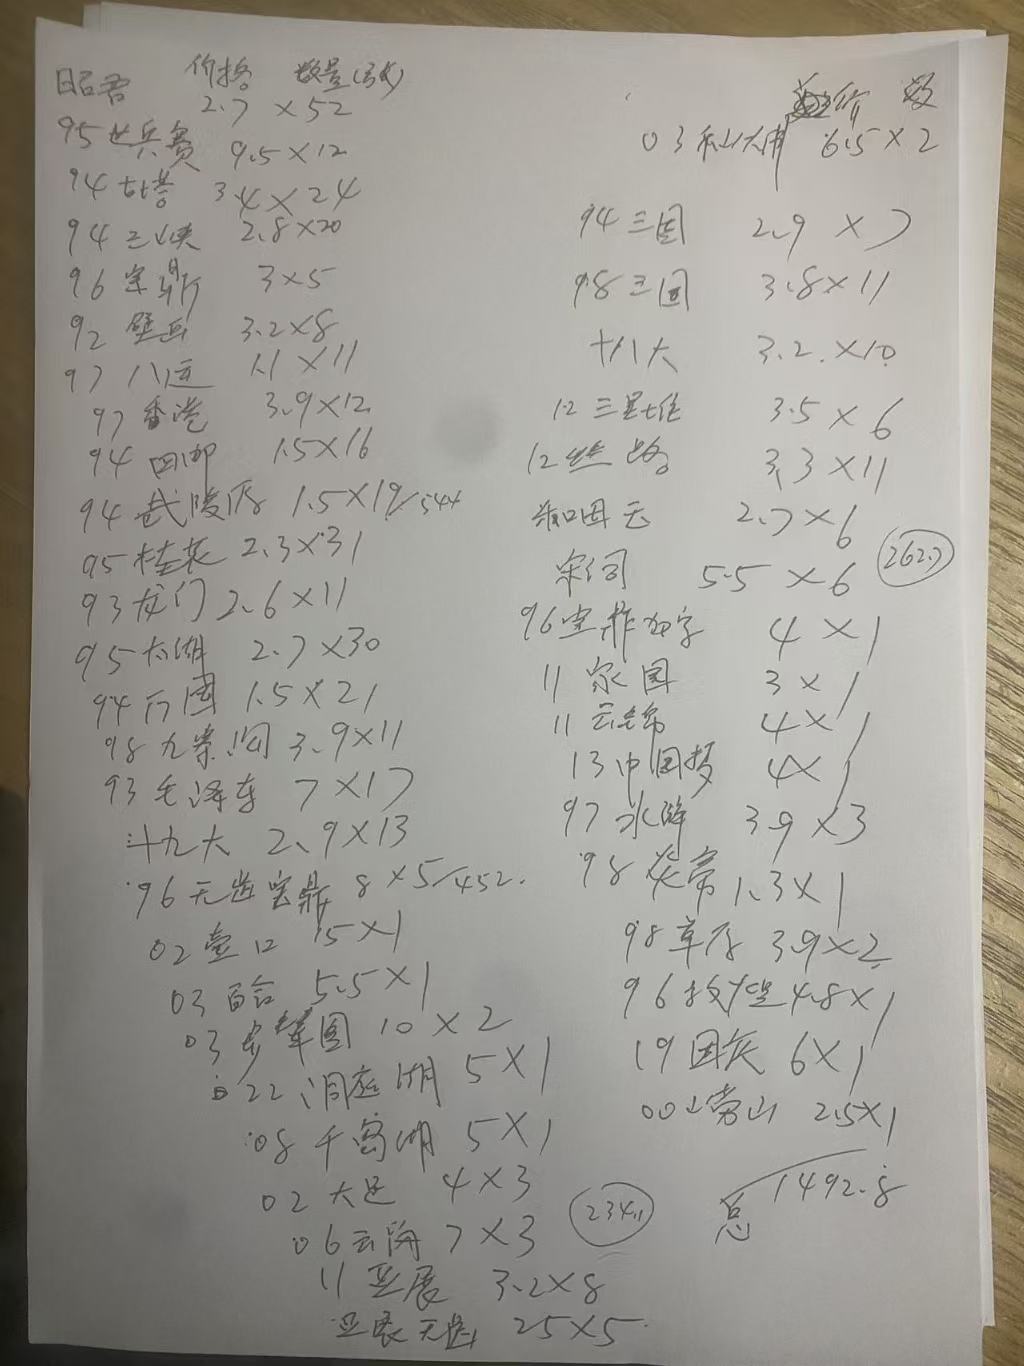 昭君 价格 数量(张)
2.7 ×52
95 世乒赛 9.5×12
94 古塔 3.4×24
94 三峡 2.8×20
96 宝鼎 3×5
92 壁画 3.2×8
97 八运 1.1×11
97 香港 3.9×12
94 四邮 1.5×16
94 武陵源 1.5×19/544
95 桂花 2.3×31
93 龙门 2.6×11
95 太湖 2.7×30
94 万国 1.5×21
98 九寨沟 3.9×11
93 毛泽东 7×17
十九大 2.9×13
96 无齿宝鼎 8×5/452.
02 壶口 5×1
03 百合 5.5×1
03 步辇图 10×2
22 洞庭湖 5×1
08 千岛湖 5×1
02 大足 4×3
06 云海 7×3
11 亚展 3.2×8
亚展无齿 25×5
2341
价 数
03 乐山大佛 6.5×2
94 三国 2.9×7
98 三国 3.8×11
十八大 3.2×10
12 三星堆 3.5×6
12 丝路 3.3×11
和田玉 2.7×6
宋词 5.5×6
262.7
96 宝鼎加字 4×1
11 家园 3×1
11 云锦 4×1
13 中国梦 4×1
97 水浒 3.9×3
98 炎帝 1.3×1
98 草原 3.9×2
96 敦煌 4.8×1
19 国庆 6×1
00 崂山 2.5×1
总 1492.8